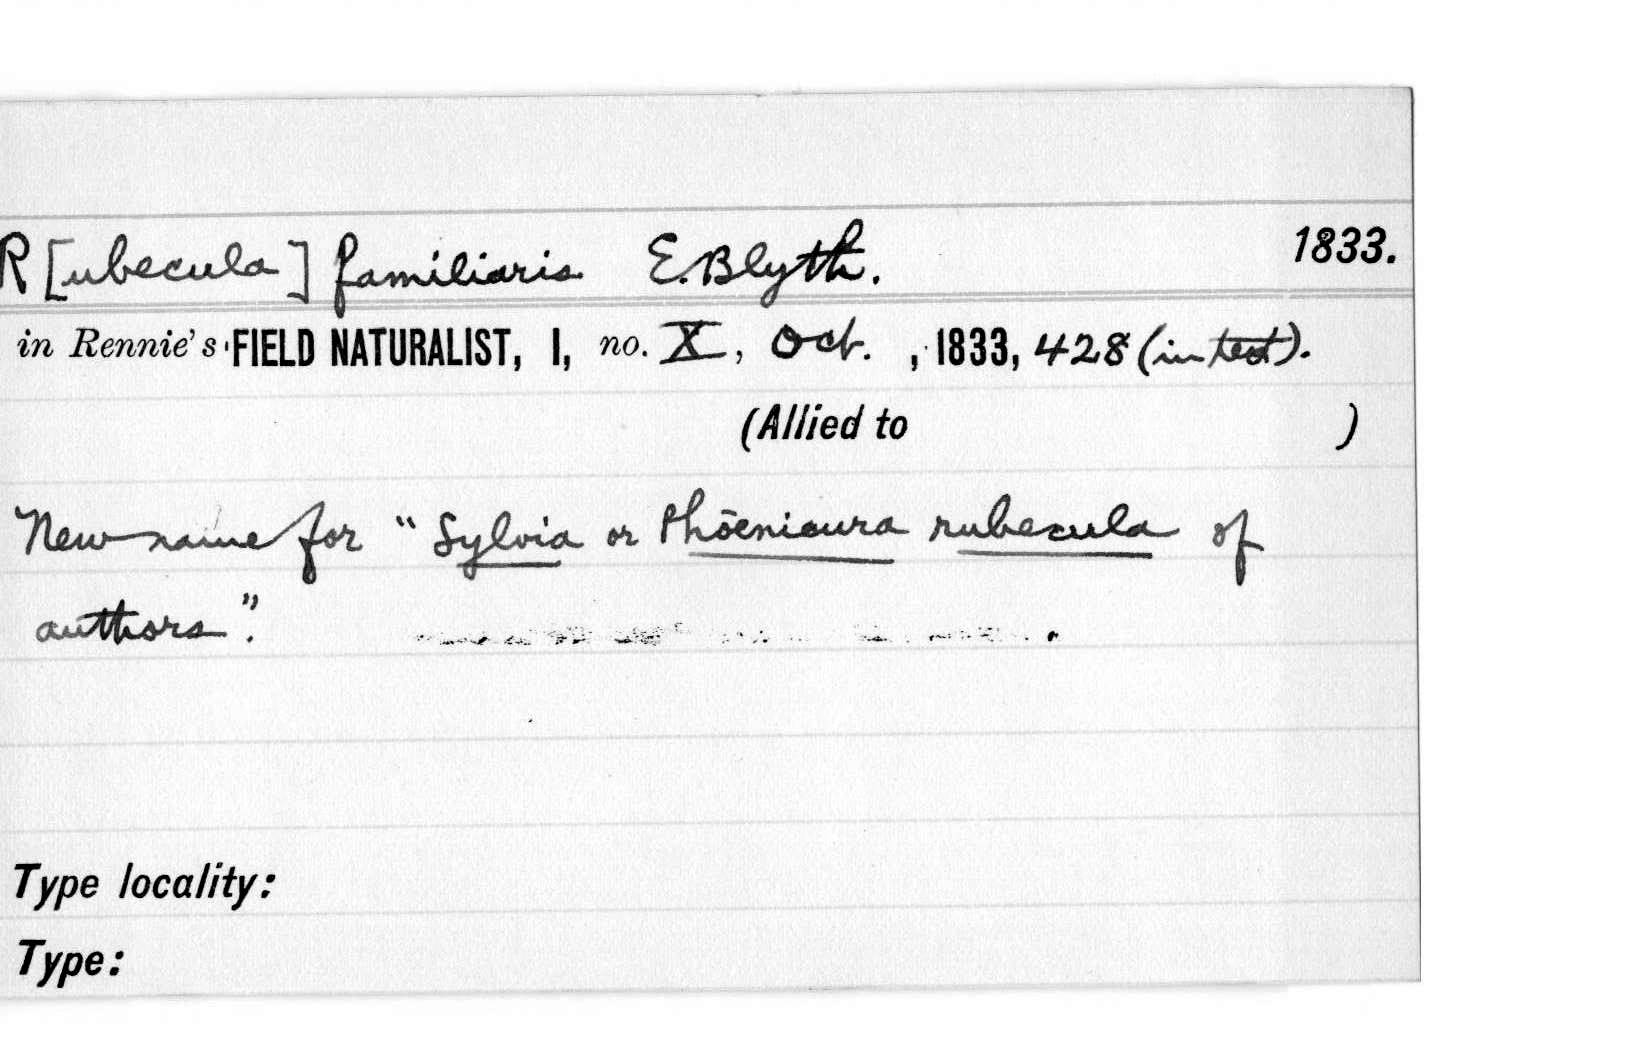 R[ubecula] familiaris E. Blyth. 1833.
in Rennie's FIELD NATURALIST, I, no. X, Oct. , 1833, 428 (in text).
(Allied to )
New name for "Sylvia or Phœnicura rubecula of
authors".
Type locality:
Type: